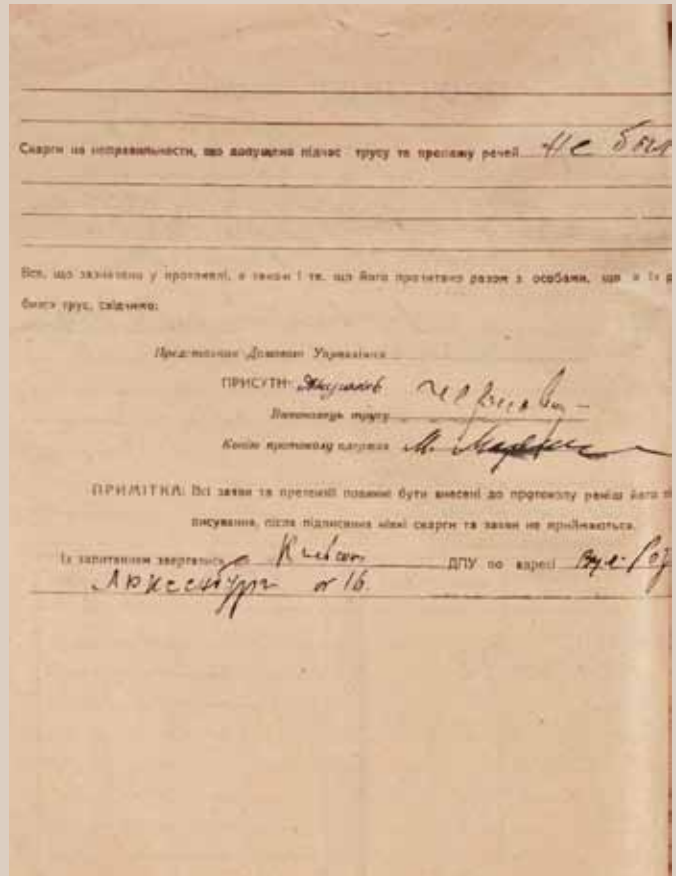 Скарги на неправильности, що допущено підчас трусу та пропажу речей не был
Все, що зазначено у протоколі, а також і те, що його прочитано разом з особами, що в їх
трус, свідчимо:
Представник Домового Управління
ПРИСУТНІ:
Виконавець трусу
Копію протоколу одержав М.
ПРИМІТКА: Всі заяви та претензії повинні бути внесені до протоколу раніш його пі
писування, після підписання ніякі скарги та заяви не приймаються.
Із запитанням звертатись ДПУ по адресі вул. Роз
Люксембург 16.